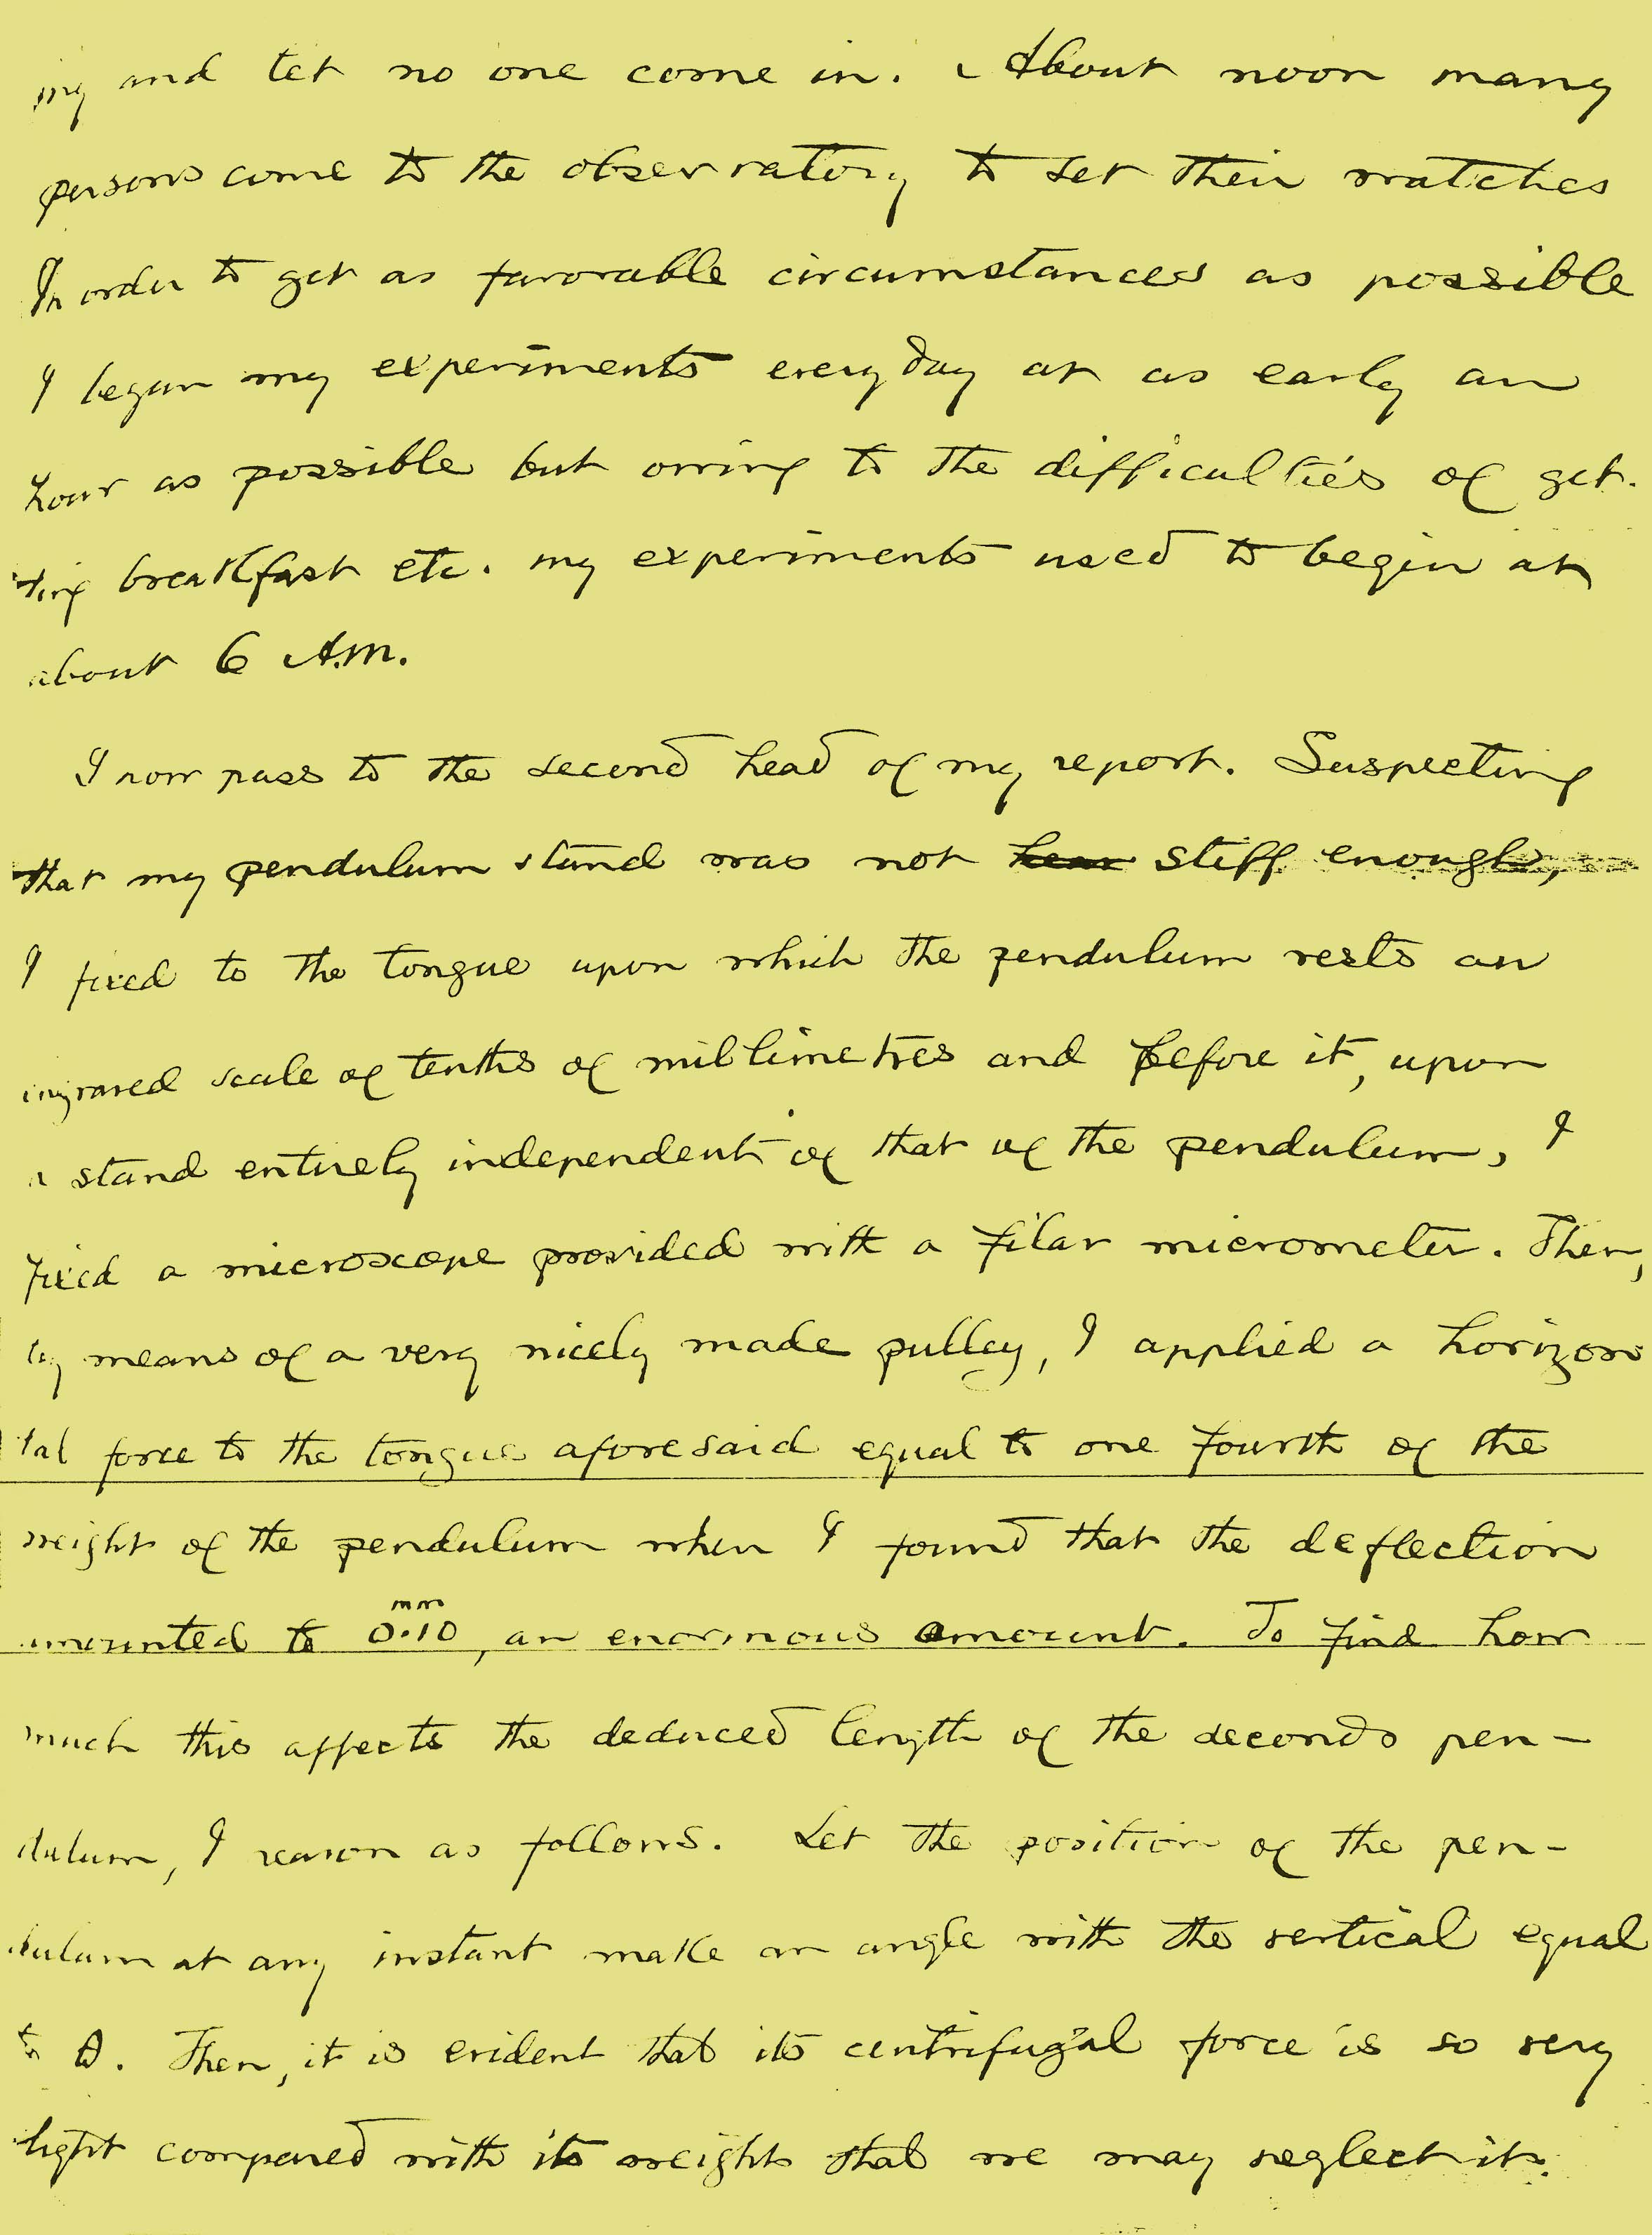 ing and let no one come in. About noon many
persons come to the observatory to set their watches
In order to get as favorable circumstances as possible
I began my experiments every day at as early an
hour as possible but owing to the difficulties of get-
ting breakfast etc. my experiments used to begin at
about 6 A.M.
I now pass to the second head of my report. Suspecting
that my pendulum stand was not stiff enough,
I fixed to the tongue upon which the pendulum rests an
engraved scale of tenths of millimetres and before it, upon
a stand entirely independent of that of the pendulum, I
fixed a microscope provided with a filar micrometer. Then,
by means of a very nicely made pulley, I applied a horizon
tal force to the tongue aforesaid equal to one fourth of the
weight of the pendulum when I found that the deflection
amounted to 0.10 mm, an enormous amount. To find how
much this affects the deduced length of the seconds pen-
dulum, I reason as follows. Let the position of the pen-
dulum at any instant make an angle with the vertical equal
to Θ. Then, it is evident that its centrifugal force is so very
light compared with its weight that we may neglect it.